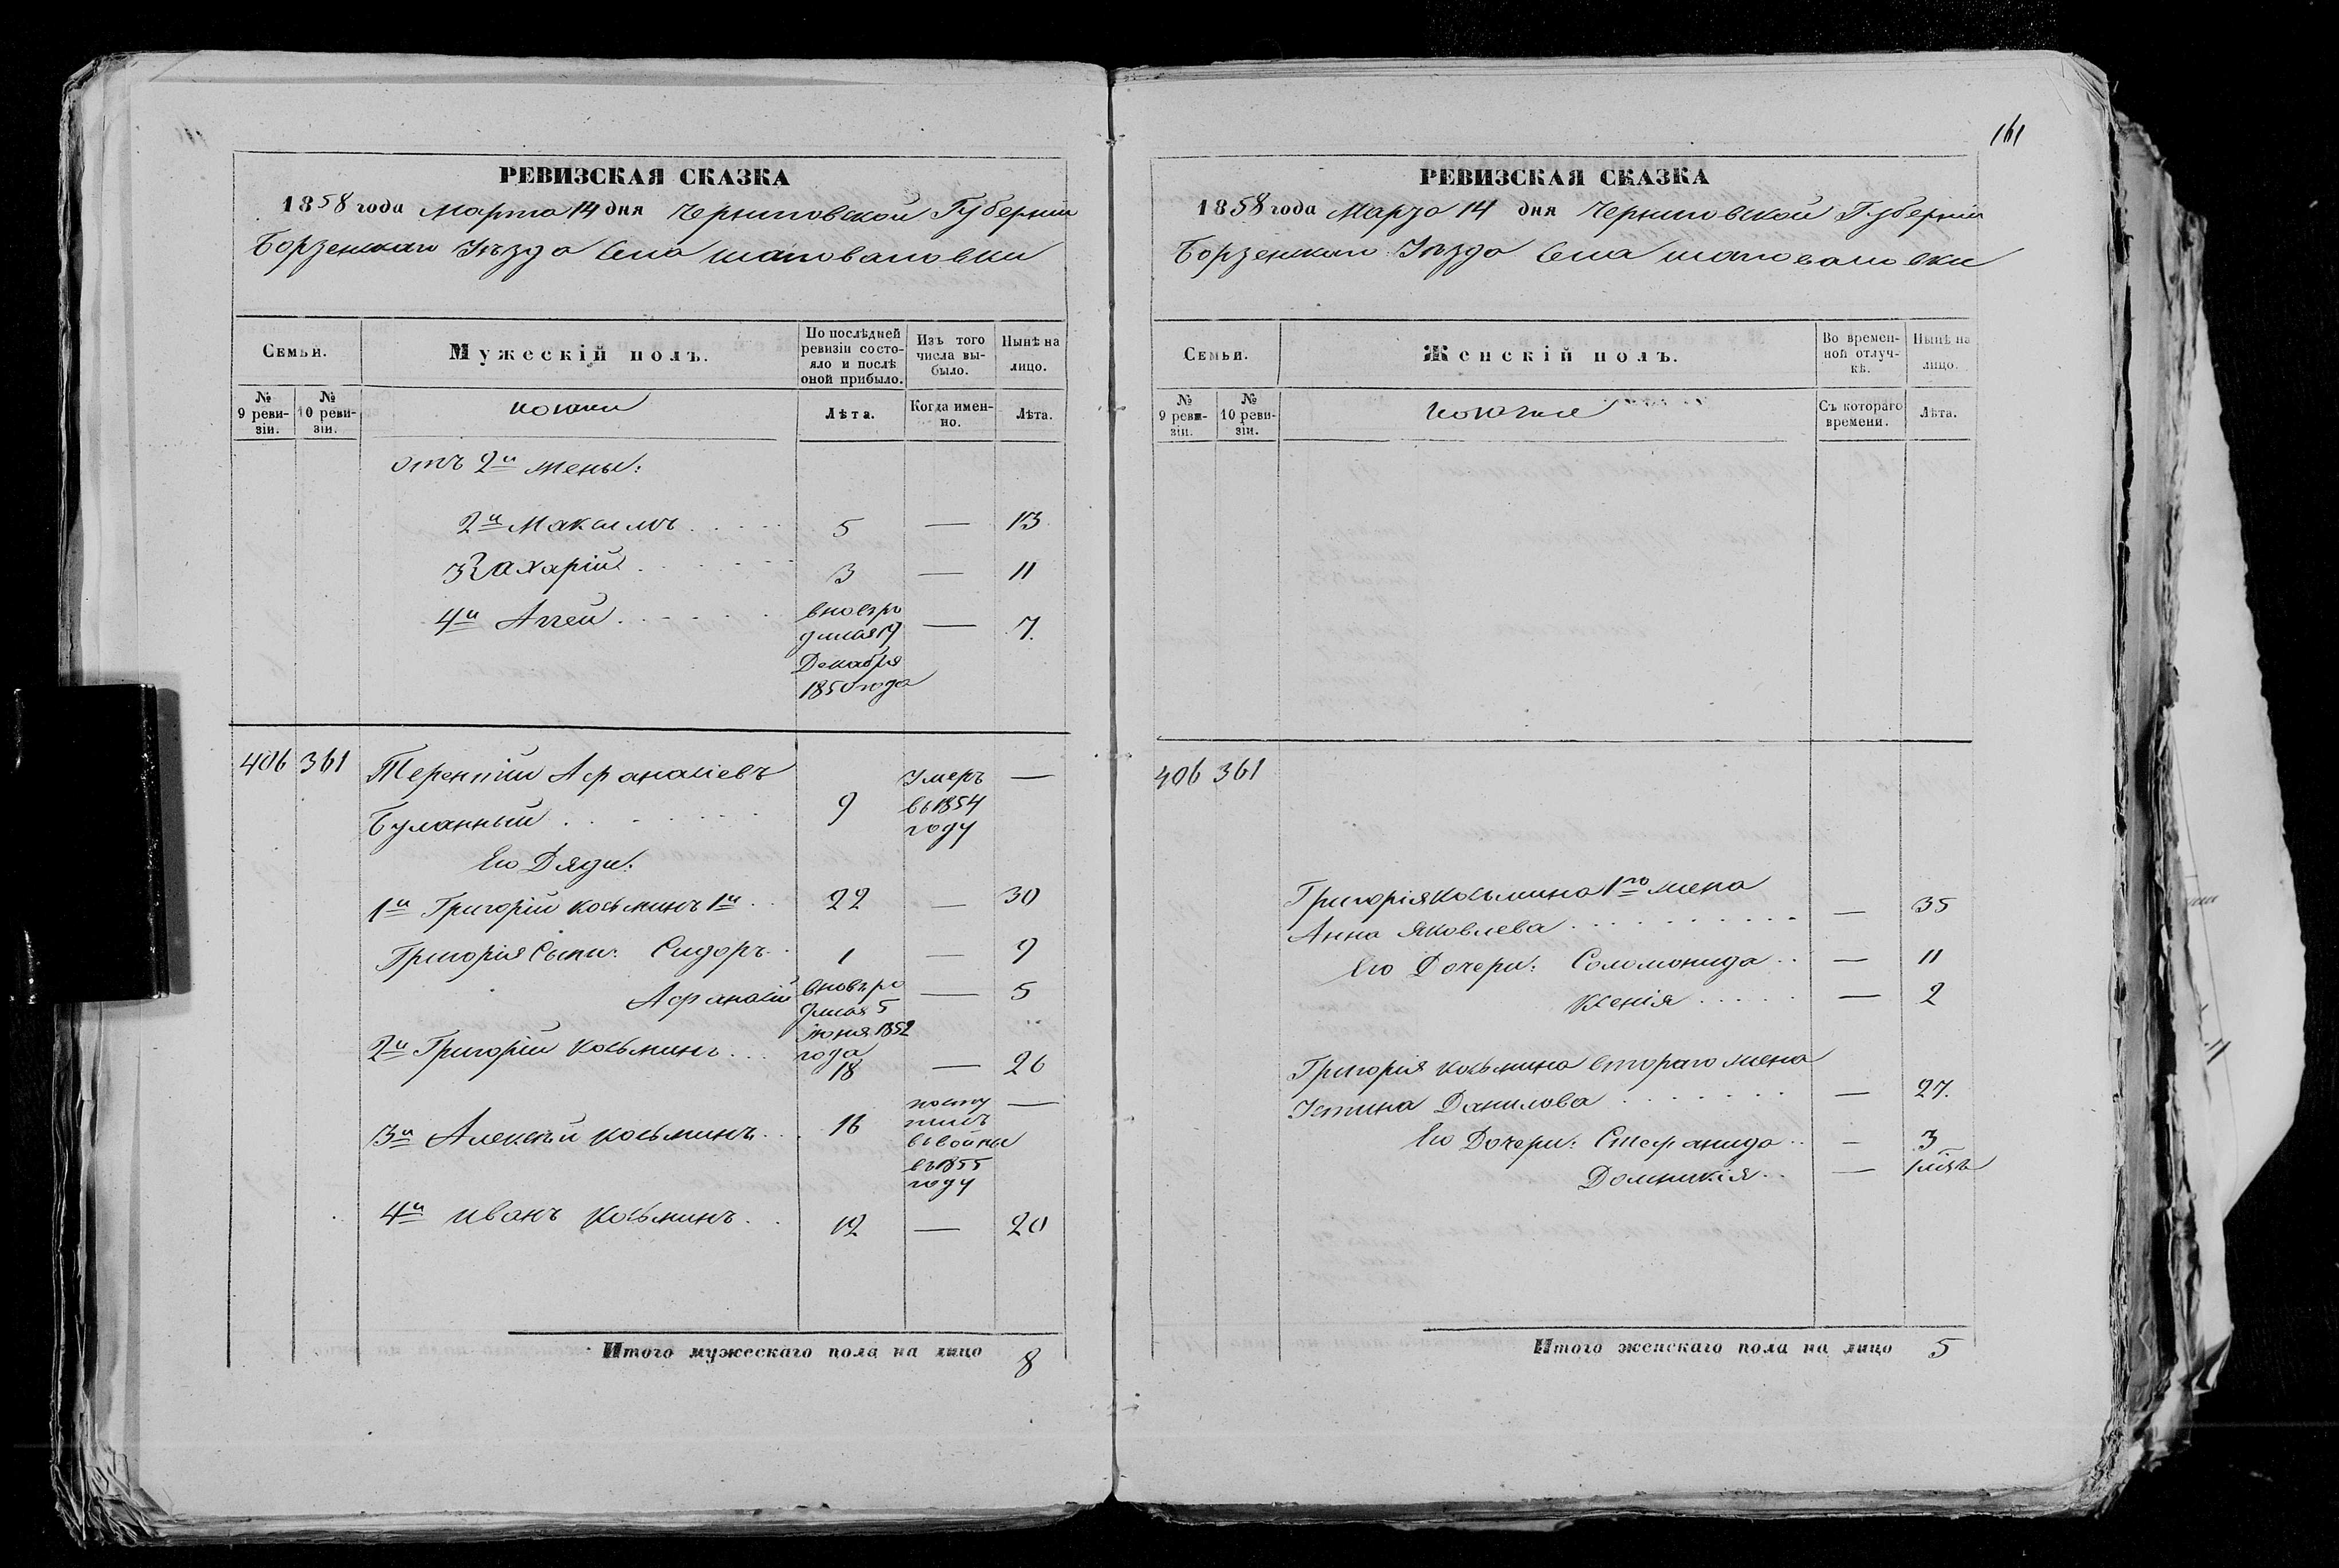 161
РЕВИЗСКАЯ СКАЗКА
1858 года Марта 14 дня Черниговской Губернии
Борзенскаго Уѣзда Села Шаповаловки
Семьи.
Мужескій полъ.
По послѣдней ревизіи состояло и послѣ оной прибыло.
Изъ того числа выбыло.
Нынѣ на лицо.
№ 9 ревизіи.
№ 10 ревизіи.
Лѣта.
Когда именно.
Лѣта.
отъ 2й жены:
2й Максимъ 5 — 13
3 Захарій 3 — 11
4й Аггей вновь родился 19 Декабря 1850 года — 7
406 361 Терентій Афанасіевъ
Буланный 9 Умеръ въ 1854 году —
Его Дяди:
1й Григорій Козьминъ 1й 22 — 30
Григорія Сыны: Сидоръ 1 — 9
Афанасій вновь родился 5 іюня 1852 года — 5
2й Григорій Козьминъ 18 — 26
3й Алексѣй Козьминъ 16 поступилъ въ войны въ 1855 году —
4й Иванъ Козьминъ 12 — 20
Итого мужескаго пола на лицо 8
РЕВИЗСКАЯ СКАЗКА
1858 года Марта 14 дня Черниговской Губерніи
Борзенскаго Уѣзда Села Шаповаловки
Семьи.
Женскій полъ.
Во временной отлучкѣ.
Нынѣ на лицо.
№ 9 ревизіи.
№ 10 ревизіи.
Съ котораго времени.
Лѣта.
406 361
Григорія Козьмина 1го жена
Анна Яковлева — 35
Его Дочери: Соломонида — 11
Ксенія — 2
Григорія Козьмина втораго жена
Устина Данилова — 27.
Его Дочери: Стефанида — 3
Домникія —
Итого женскаго пола на лицо 5